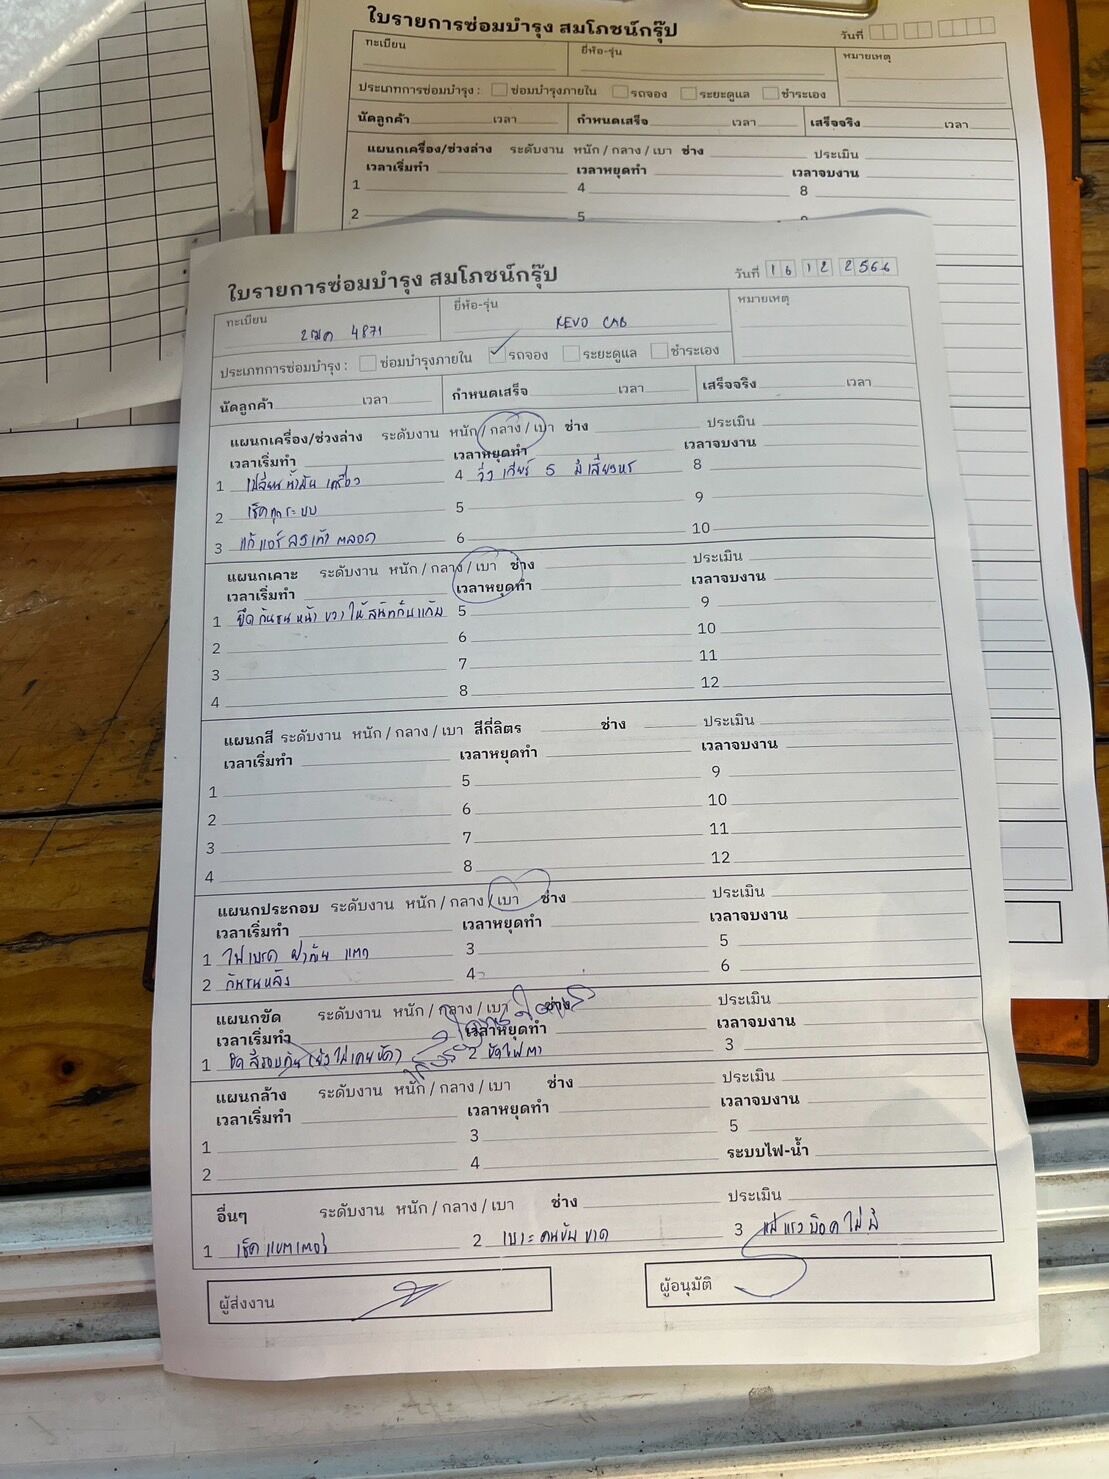 ใบรายการซ่อมบำรุง สมโภชน์กรุ๊ป
วันที่
ทะเบียน ยี่ห้อ-รุ่น หมายเหตุ
ประเภทการซ่อมบำรุง : ซ่อมบำรุงภายใน รถจอง ระยะดูแล ชำระเอง
นัดลูกค้า เวลา กำหนดเสร็จ เวลา เสร็จจริง เวลา
แผนกเครื่อง/ช่วงล่าง ระดับงาน หนัก / กลาง / เบา ช่าง ประเมิน
เวลาเริ่มทำ เวลาหยุดทำ เวลาจบงาน
1 4 8
2 5
ใบรายการซ่อมบำรุง สมโภชน์กรุ๊ป
วันที่ 16 12 2566
ทะเบียน ยี่ห้อ-รุ่น หมายเหตุ
4871 REVO CAB
ประเภทการซ่อมบำรุง : ซ่อมบำรุงภายใน รถจอง ระยะดูแล ชำระเอง
นัดลูกค้า เวลา กำหนดเสร็จ เวลา เสร็จจริง เวลา
แผนกเครื่อง/ช่วงล่าง ระดับงาน หนัก / กลาง / เบา ช่าง ประเมิน
เวลาเริ่มทำ เวลาหยุดทำ เวลาจบงาน
1 เปลี่ยนน้ำมันเครื่อง 4 วิ่งเกียร์ 5 มีเสียงหอน 8
2 เช็คทุกระบบ 5 9
3 แก้แอร์ลงเท้าตลอด 6 10
แผนกเคาะ ระดับงาน หนัก / กลาง / เบา ช่าง ประเมิน
เวลาเริ่มทำ เวลาหยุดทำ เวลาจบงาน
1 ยึดกันชนหน้าขวาให้สนิทกับแก้ม 5 9
2 6 10
3 7 11
4 8 12
แผนกสี ระดับงาน หนัก / กลาง / เบา สีกี่ลิตร ช่าง ประเมิน
เวลาเริ่มทำ เวลาหยุดทำ เวลาจบงาน
1 5 9
2 6 10
3 7 11
4 8 12
แผนกประกอบ ระดับงาน หนัก / กลาง / เบา ช่าง ประเมิน
เวลาเริ่มทำ เวลาหยุดทำ เวลาจบงาน
1 ไฟเบรค แตก 3 5
2 กันชนหลัง 4 6
แผนกขัด ระดับงาน หนัก / กลาง / เบา ช่าง ประเมิน
เวลาเริ่มทำ เวลาหยุดทำ เวลาจบงาน
1 ขัดสีรอบคัน (ยังไม่เคยขัด) 2 ขัดไฟตา 3
แผนกล้าง ระดับงาน หนัก / กลาง / เบา ช่าง ประเมิน
เวลาเริ่มทำ เวลาหยุดทำ เวลาจบงาน
1 3 5
2 4 ระบบไฟ-น้ำ
อื่นๆ ระดับงาน หนัก / กลาง / เบา ช่าง ประเมิน
1 เช็คแบตเตอรี่ 2 เบาะคนขับขาด 3 แม่แรงบ๊อคไม่มี
ผู้ส่งงาน ผู้อนุมัติ